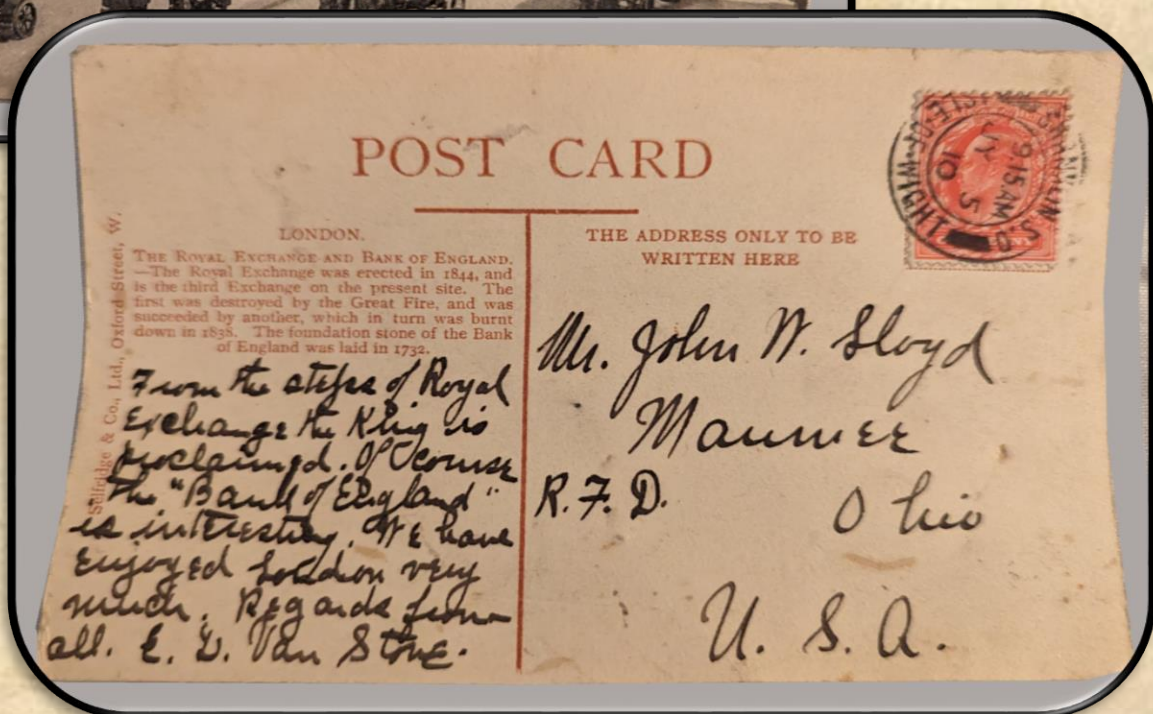 POST CARD
LONDON.
THE ROYAL EXCHANGE AND BANK OF ENGLAND.
—The Royal Exchange was erected in 1844, and
is the third Exchange on the present site. The
first was destroyed by the Great Fire, and was
succeeded by another, which in turn was burnt
down in 1838. The foundation stone of the Bank
of England was laid in 1732.
From the steps of Royal
Exchange the King is
proclaimed. Of course
the "Bank of England"
is interesting. We have
enjoyed London very
much. Regards from
all. E. D. Van Stone.
Selfridge & Co., Ltd., Oxford Street, W.
THE ADDRESS ONLY TO BE
WRITTEN HERE
Mr. John W. Lloyd
Maumee
R.F.D.
Ohio
U. S. A.
S.O
ISLE-OF-WIGHT
9.15AM
JY 5
10